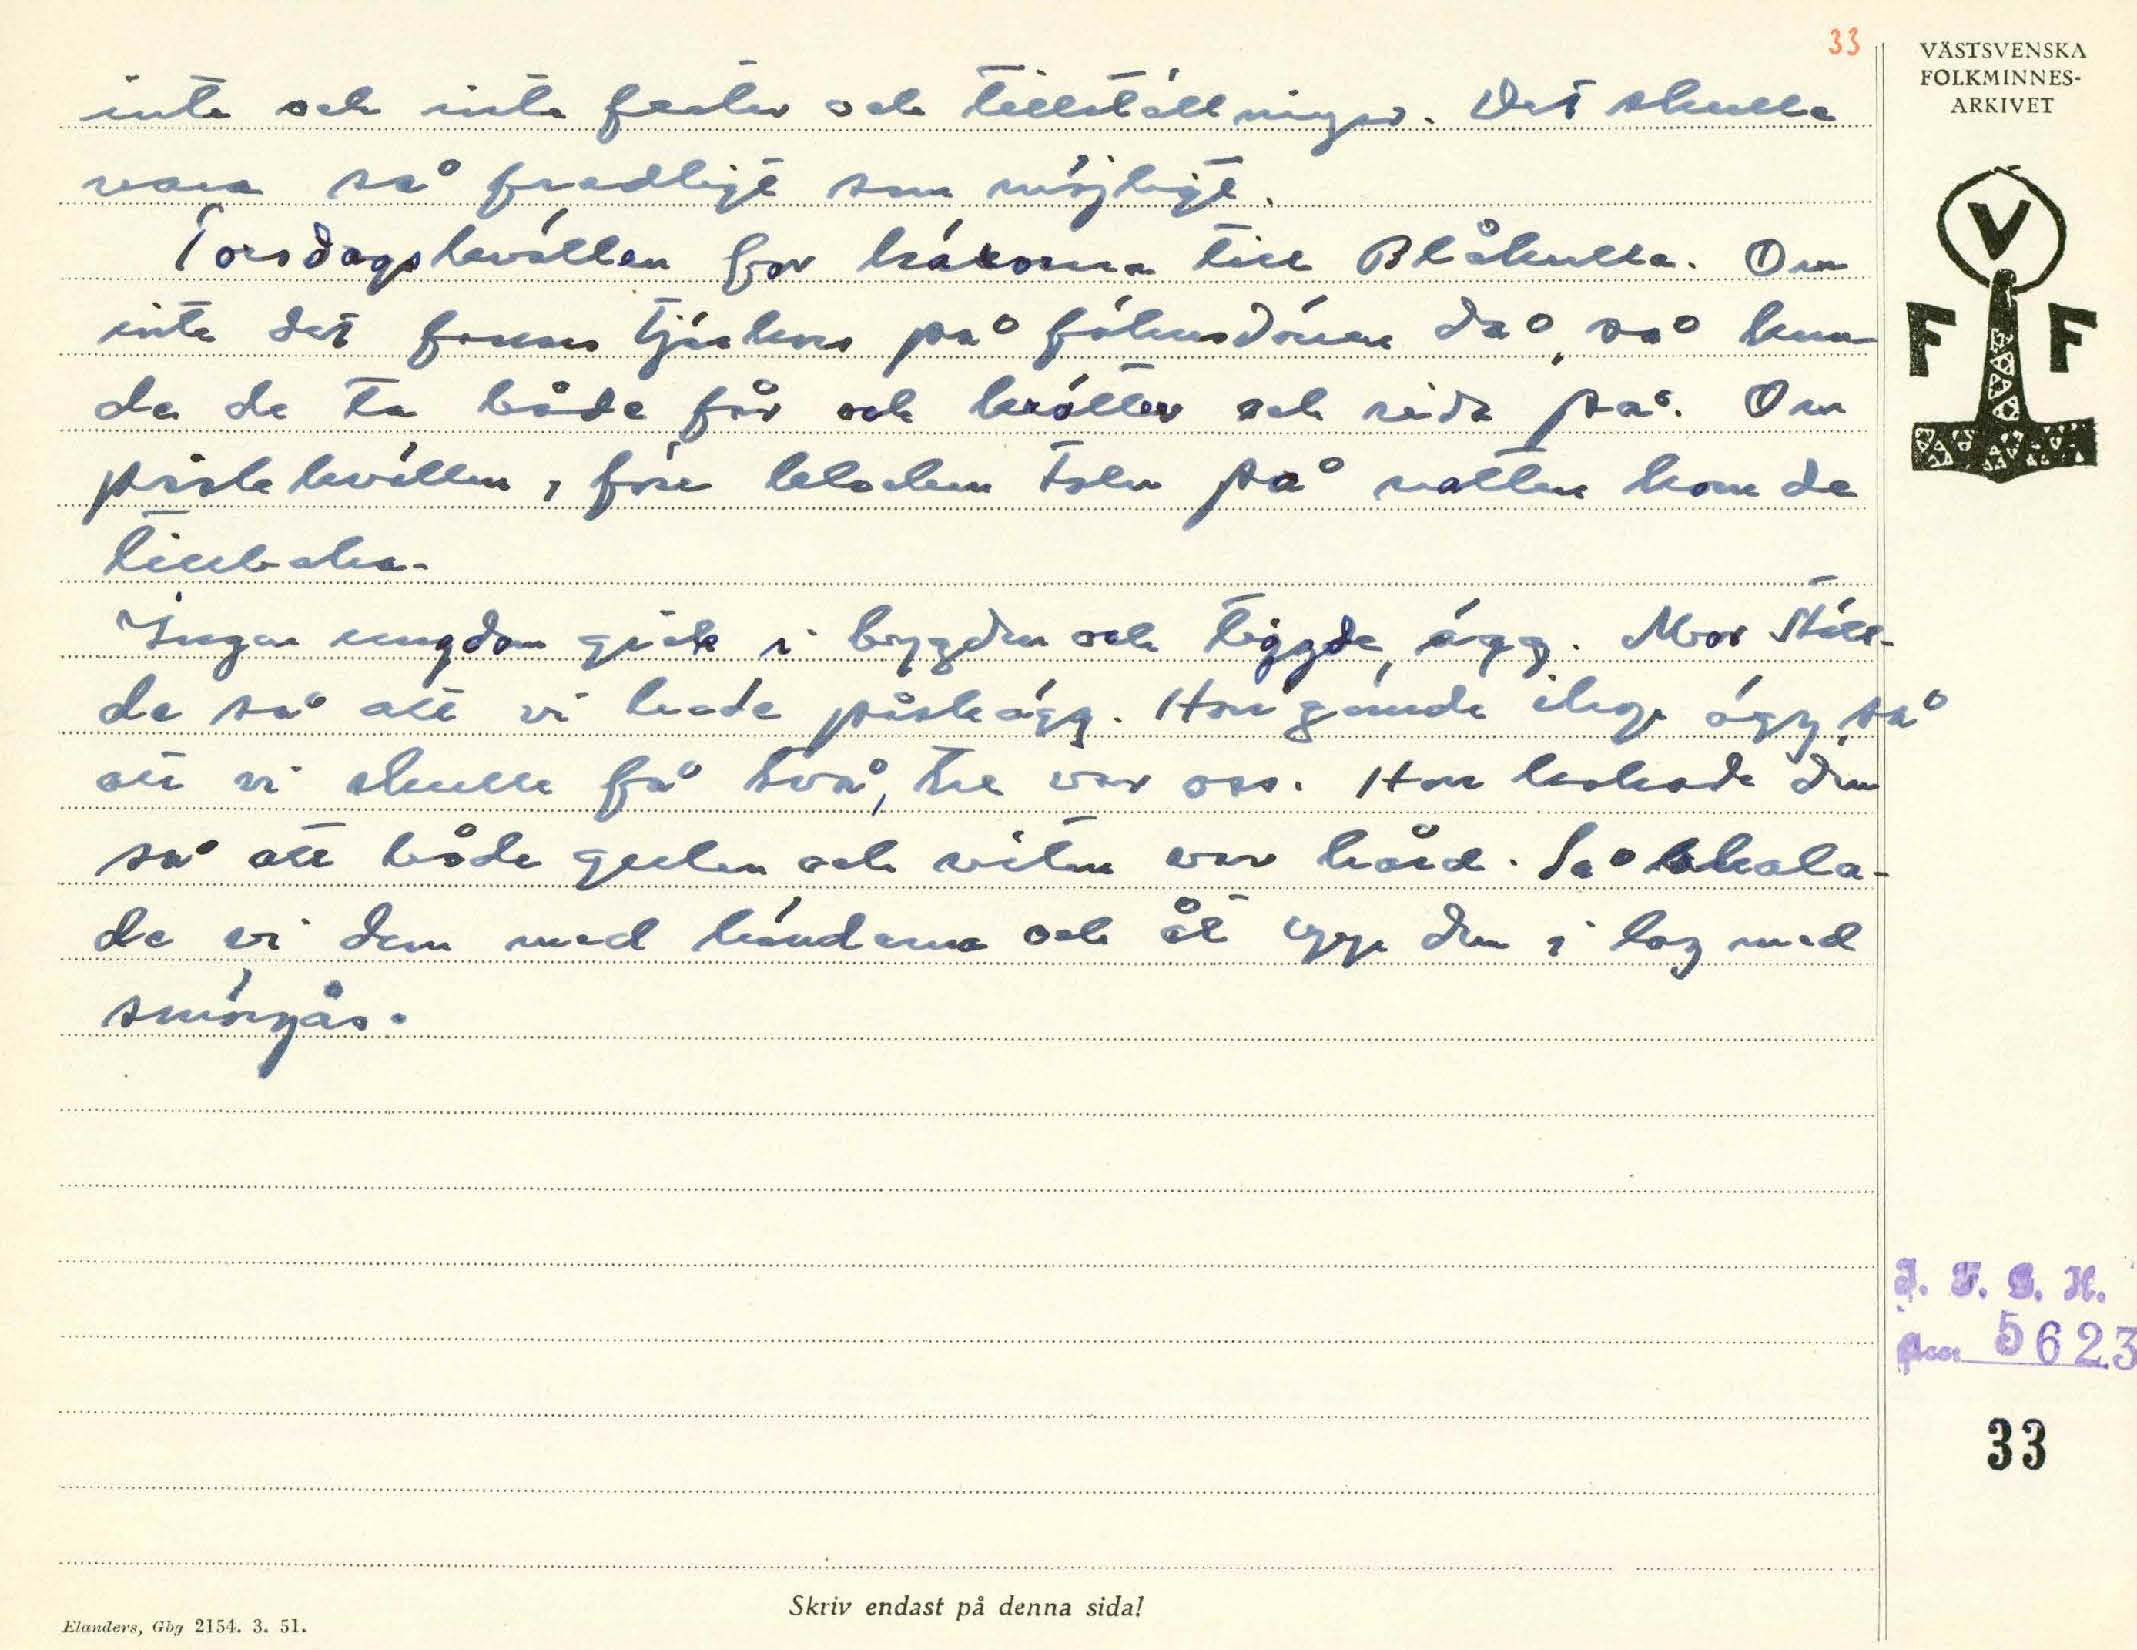 33
VÄSTSVENSKA
FOLKMINNES-
ARKIVET
V
F F
inte och inte fester och tillställningar. Det skulle
vara så fredligt som möjligt.
Torsdagskvällen for häxorna till Blåkulla. Om
inte det fanns tjärkors på fähusdörren då, så kun-
de de ta både får och kreatur och rida på. Om
påskkvällen, före klockan tolv på natten kom de
tillbaka.
Ingen ungdom gick i bygden och tiggde ägg. Mor ställ-
de så att vi hade påskägg. Hon gömde ihop ägg så
att vi skulle få två, tre var oss. Hon kokade dem
så att både gulan och vitan var hård. Så skala-
de vi dem med händerna och åt upp dem i lag med
smörgås.
I. F. G. H.
5623
33
Skriv endast på denna sida!
Elanders, Gbg 2154. 3. 51.